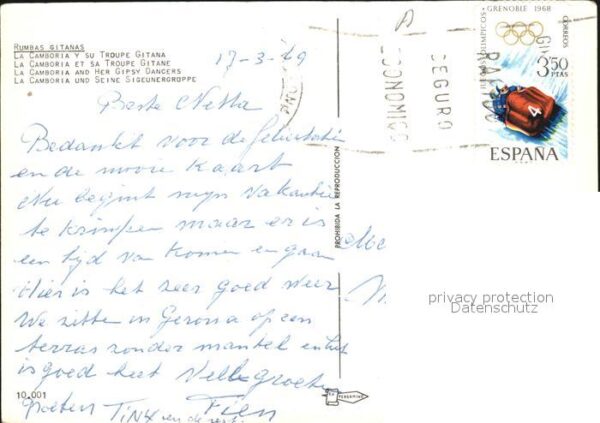 RUMBAS GITANAS
LA CAMBORIA Y SU TROUPE GITANA
LA CAMBORIA ET SA TROUPE GITANE
LA CAMBORIA AND HER GIPSY DANCERS
LA CAMBORIA UND SEINE SIGEUNERGRUPPE
17-3-69
Beste Netta
Bedankt voor de felicitatie
en de mooie Kaart
Nu begint mijn vakantie
te krimpen maar er is
een tijd van Komen en gaan
Hier is het zeer goed weer
We zitten in Gerona op een
terras zonder mantel en het
is goed heet Vele groeten
Groeten TINY en de rest. Fien
10.001
PROHIBIDA LA REPRODUCCION
ECONOMICO
SEGURO
JUEGOS OLIMPICOS
GRENOBLE 1968
CORREOS
3'50
PTAS
4
ESPAÑA
privacy protection
Datenschutz